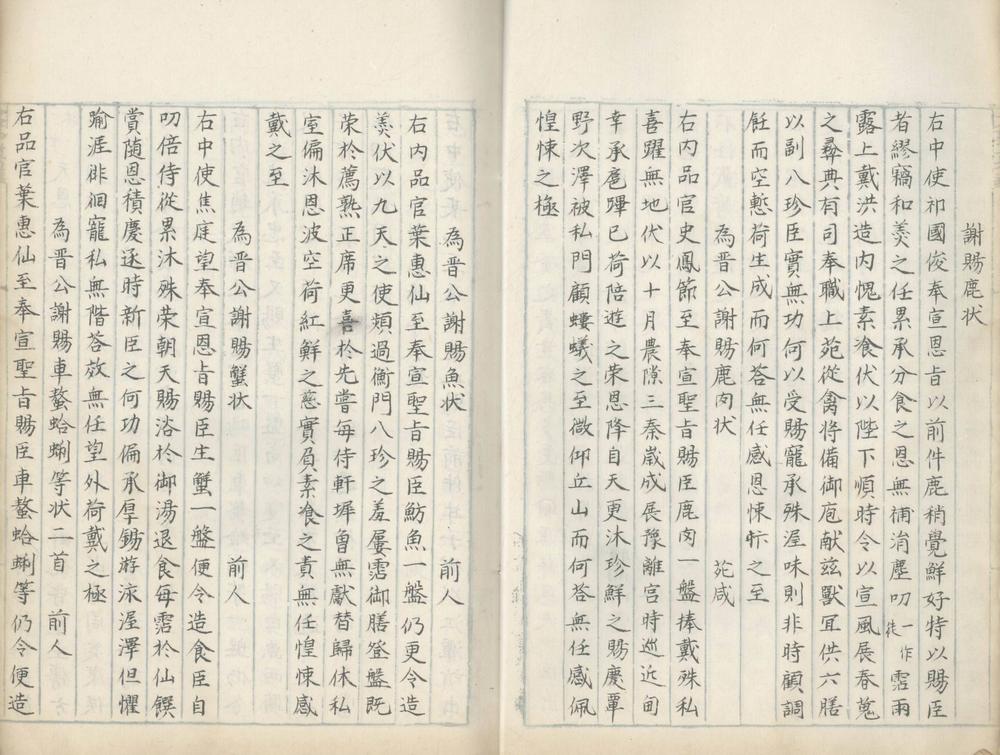 謝賜鹿状
右中使祁國俊奉宣恩旨以前件鹿稍覺鮮好特以賜臣
者繆竊和羮之任累承分食之恩無補涓塵叨一作徒霑雨
露上戴洪造内愧素飡伏以陛下順時令以宣風展春蒐
之彞典有司奉職上苑從禽将備御庖献茲獸冝供六膳
以副八珍臣實無功何以受賜寵承殊渥味則非時顧調
飪而空慙荷生成而何荅無任感恩悚忻之至
為晋公謝賜鹿肉状 苑咸
右内品官史鳳節至奉宣聖旨賜臣鹿肉一盤捧戴殊私
喜躍無地伏以十月農隙三秦嵗成展豫離宮時巡近甸
幸承扈蹕已荷陪遊之荣恩降自天更沐珍鮮之賜慶覃
野次澤被私門顧螻蟻之至微仰丘山而何荅無任感佩
惶悚之極
為晋公謝賜魚状 前人
右内品官葉惠仙至奉宣聖旨賜臣魴魚一盤仍更令造
羮伏以九天之使頻過衡門八珍之羞屢霑御膳登盤既
荣於薦熟正席更喜於先嘗每侍軒墀曾無獻替歸休私
室偏沐恩波空荷紅鮮之慈實負素飡之責無任惶悚感
戴之至
為晋公謝賜蟹状 前人
右中使焦庭望奉宣恩旨賜臣生蟹一盤便令造食臣自
叨倍侍從累沐殊荣朝天賜浴於御湯退食每霑於仙饌
賞随恩積慶逐時新臣之何功偏承厚錫游泳渥澤但懼
踰涯徘徊寵私無階荅效無任望外荷戴之極
為晋公謝賜車螯蛤蜊等状二首 前人
右品官葉惠仙至奉宣聖旨賜臣車螯蛤蜊等仍令便造